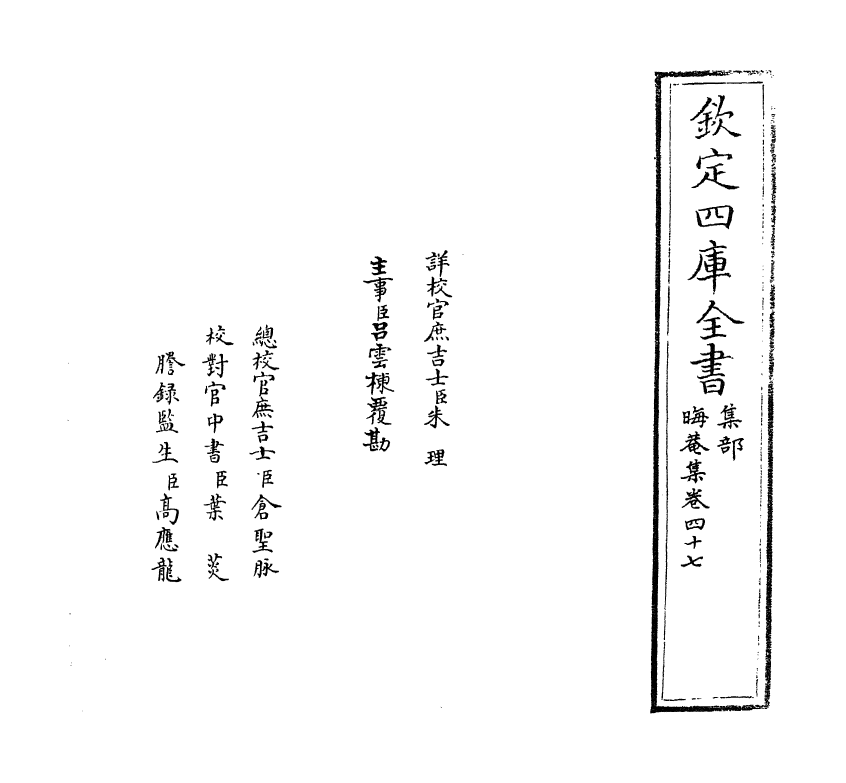 欽定四庫全書
集部
晦菴集卷四十七
詳校官庶吉士臣朱理
主事臣呂雲棟覆勘
總校官庶吉士臣倉聖脉
校對官中書臣葉菼
謄録監生臣高應龍